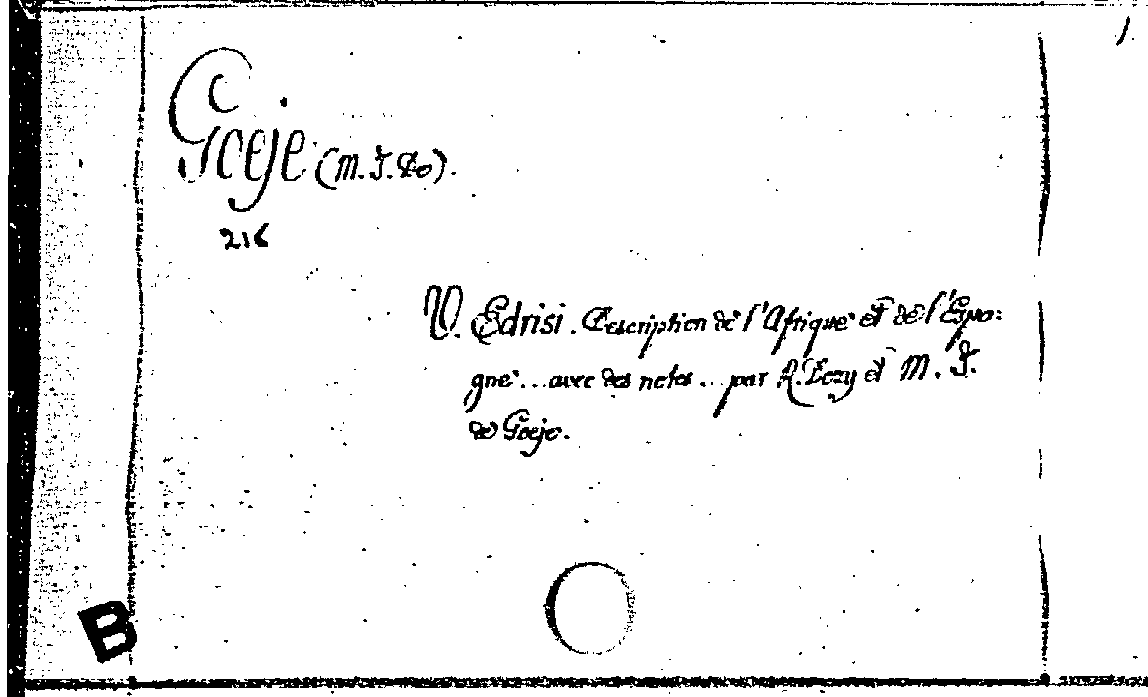 Goeje (M. J. de).
216
V. Edrisi. Description de l'Afrique et de l'Espa:
gne... avec des notes... par R. Dozy et M. J.
de Goeje.
B